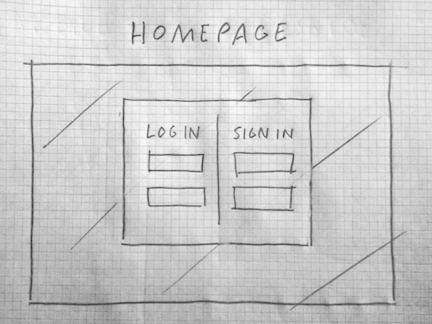 HOMEPAGE
LOG IN SIGN IN